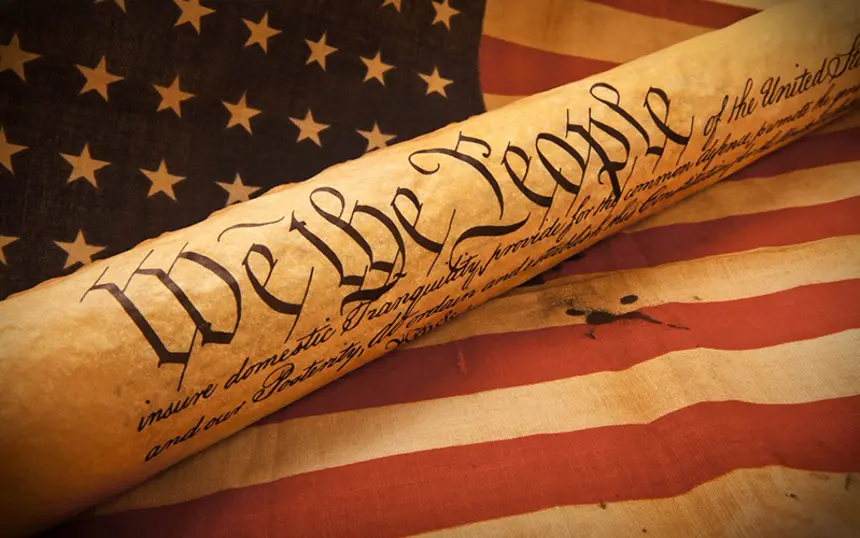 We the People of the United Sta
insure domestic Tranquility, provide for the common defence, promote the gene
and our Posterity, do ordain and establish this Constitution for the